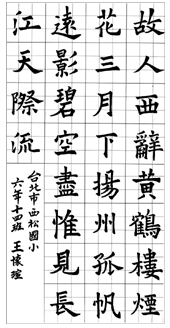 故人西辭黃鶴樓煙
花三月下揚州孤帆
遠影碧空盡惟見長
江天際流
台北市西松國小
六年十四班 王懷瑄